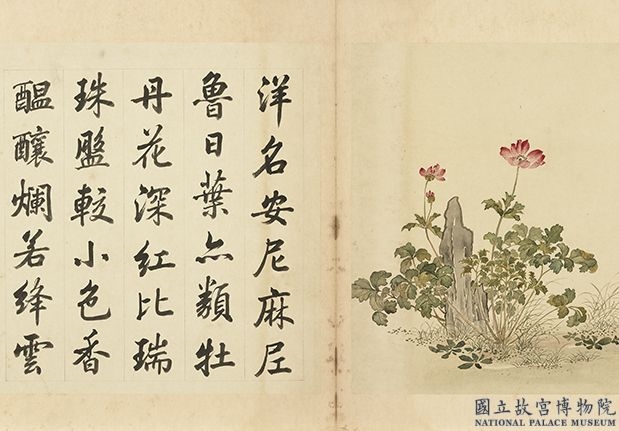 洋名安尼麻尼
魯日葉亦類牡
丹花深紅比瑞
珠盤較小色香
醖釀爛若絳雲
國立故宮博物院
NATIONAL PALACE MUSEUM